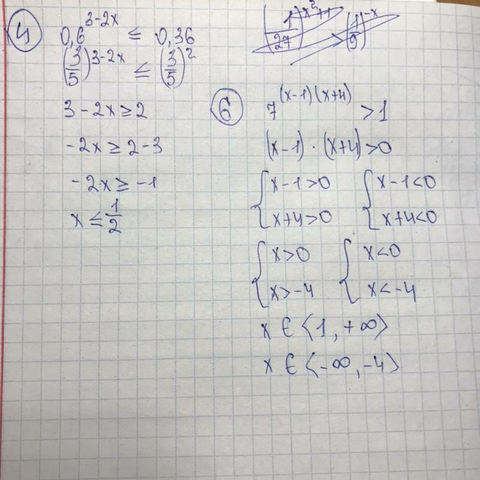 4
0,6^{3-2x} ≤ 0,36
(3/5)^{3-2x} ≤ (3/5)^2
3-2x ≥ 2
-2x ≥ 2-3
-2x ≥ -1
x ≤ 1/2
6
7^{(x-1)(x+4)} > 1
(x-1) · (x+4) > 0
{ x-1>0 { x-1<0
{ x+4>0 { x+4<0
{ x>0 { x<0
{ x>-4 { x<-4
x ∈ ⟨1, +∞⟩
x ∈ ⟨-∞, -4⟩